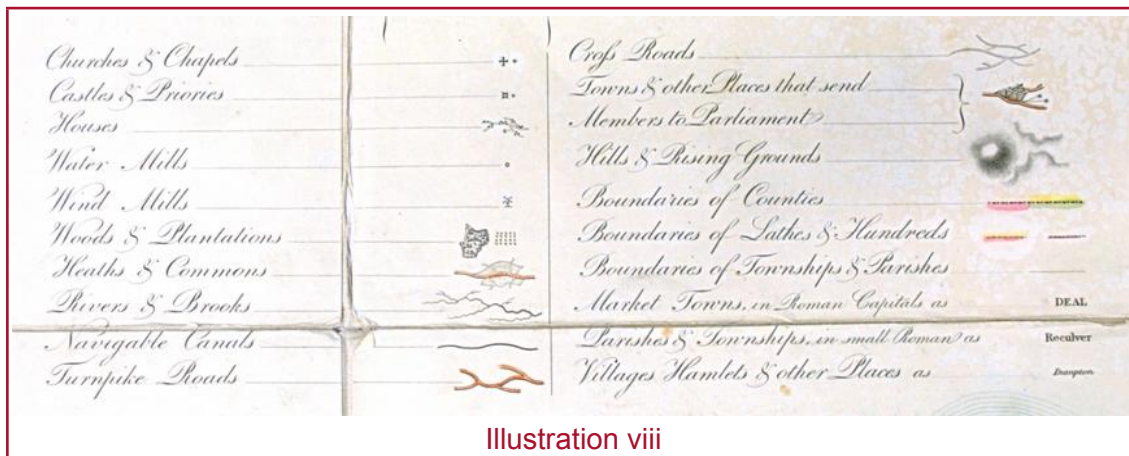 Churches & Chapels
Castles & Priories
Houses
Water Mills
Wind Mills
Woods & Plantations
Heaths & Commons
Rivers & Brooks
Navigable Canals
Turnpike Roads
Croſs Roads
Towns & other Places that send
Members to Parliament
Hills & Rising Grounds
Boundaries of Counties
Boundaries of Lathes & Hundreds
Boundaries of Townships & Parishes
Market Towns, in Roman Capitals as DEAL
Parishes & Townships, in small Roman as Reculver
Villages Hamlets & other Places as
Illustration viii